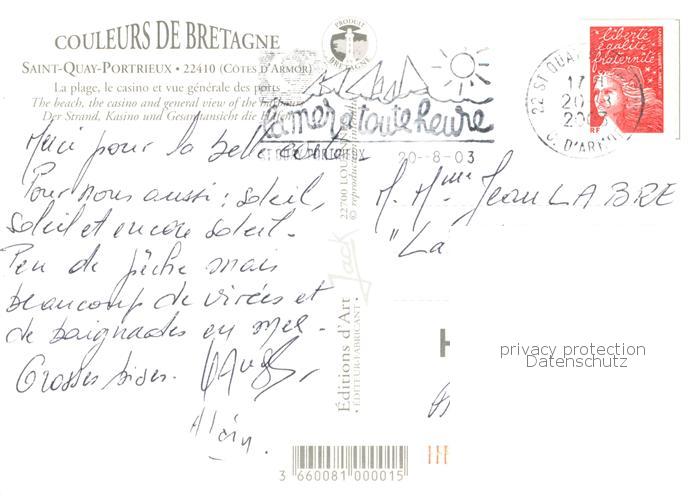 COULEURS DE BRETAGNE
PRODUIT BRETAGNE
SAINT-QUAY-PORTRIEUX • 22410 (CÔTES D'ARMOR)
La plage, le casino et vue générale des ports
The beach, the casino and general view of the
Der Strand, Kasino und Gesamtansicht die
la mer à toute heure
ST QUAY PORTRIEUX
20-8-03
22 ST QUAY
17H
20
C. D'ARMOR
liberté
égalité
fraternité
RF
LA POSTE
Merci pour la belle carte
Pour nous aussi : soleil,
soleil et encore soleil.
Peu de pêche mais
beaucoup de virées et
de baignades en mer.
Grosses bises.
Alain.
M. Mme Jean LABRE
"La
Editions d'Art Jack
• EDITEUR-FABRICANT •
22700 LOU
© reproduction
H
privacy protection
Datenschutz
3 660081 000015